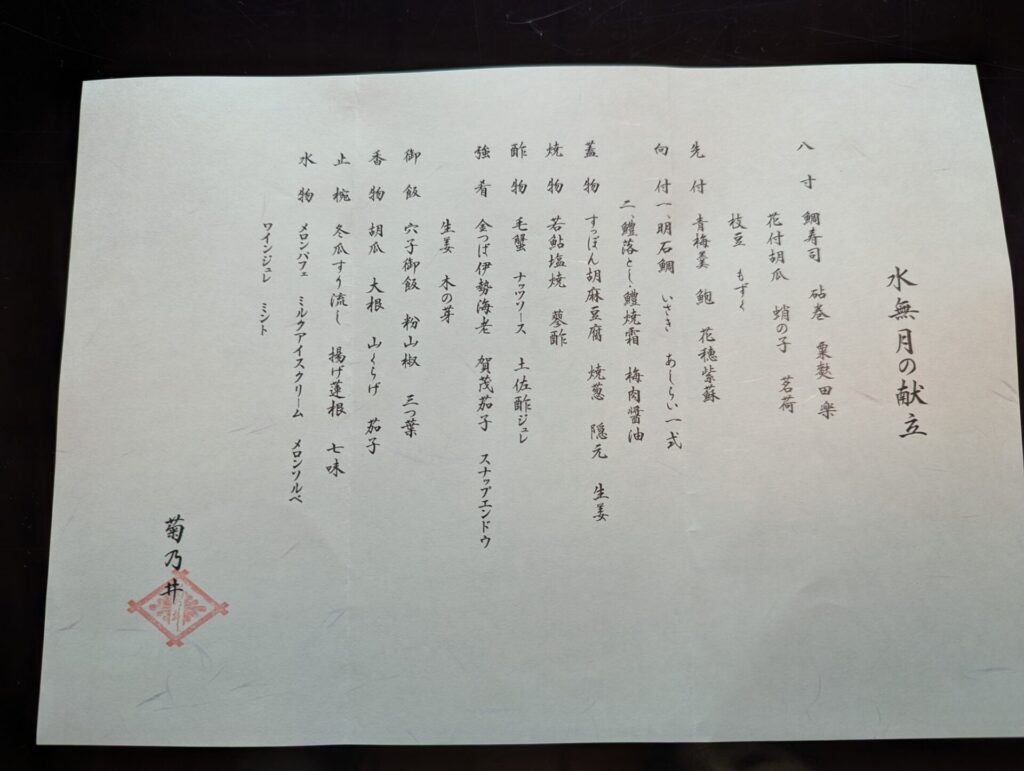 水無月の献立
八寸 鯛寿司 砧巻 粟麩田楽
花付胡瓜 蛸の子 茗荷
枝豆 もずく
先付 青梅羹 鮑 花穂紫蘇
向付 一、明石鯛 いさき あしらい一式
二、鱧落とし、鱧焼霜 梅肉醤油
蓋物 すっぽん胡麻豆腐 焼葱 隠元 生姜
焼物 若鮎塩焼 蓼酢
酢物 毛蟹 ナッツソース 土佐酢ジュレ
強肴 金つば伊勢海老 賀茂茄子 スナップエンドウ
生姜 木の芽
御飯 穴子御飯 粉山椒 三つ葉
香物 胡瓜 大根 山くらげ 茄子
止椀 冬瓜すり流し 揚げ蓮根 七味
水物 メロンパフェ ミルクアイスクリーム メロンソルベ
ワインジュレ ミント
菊乃井